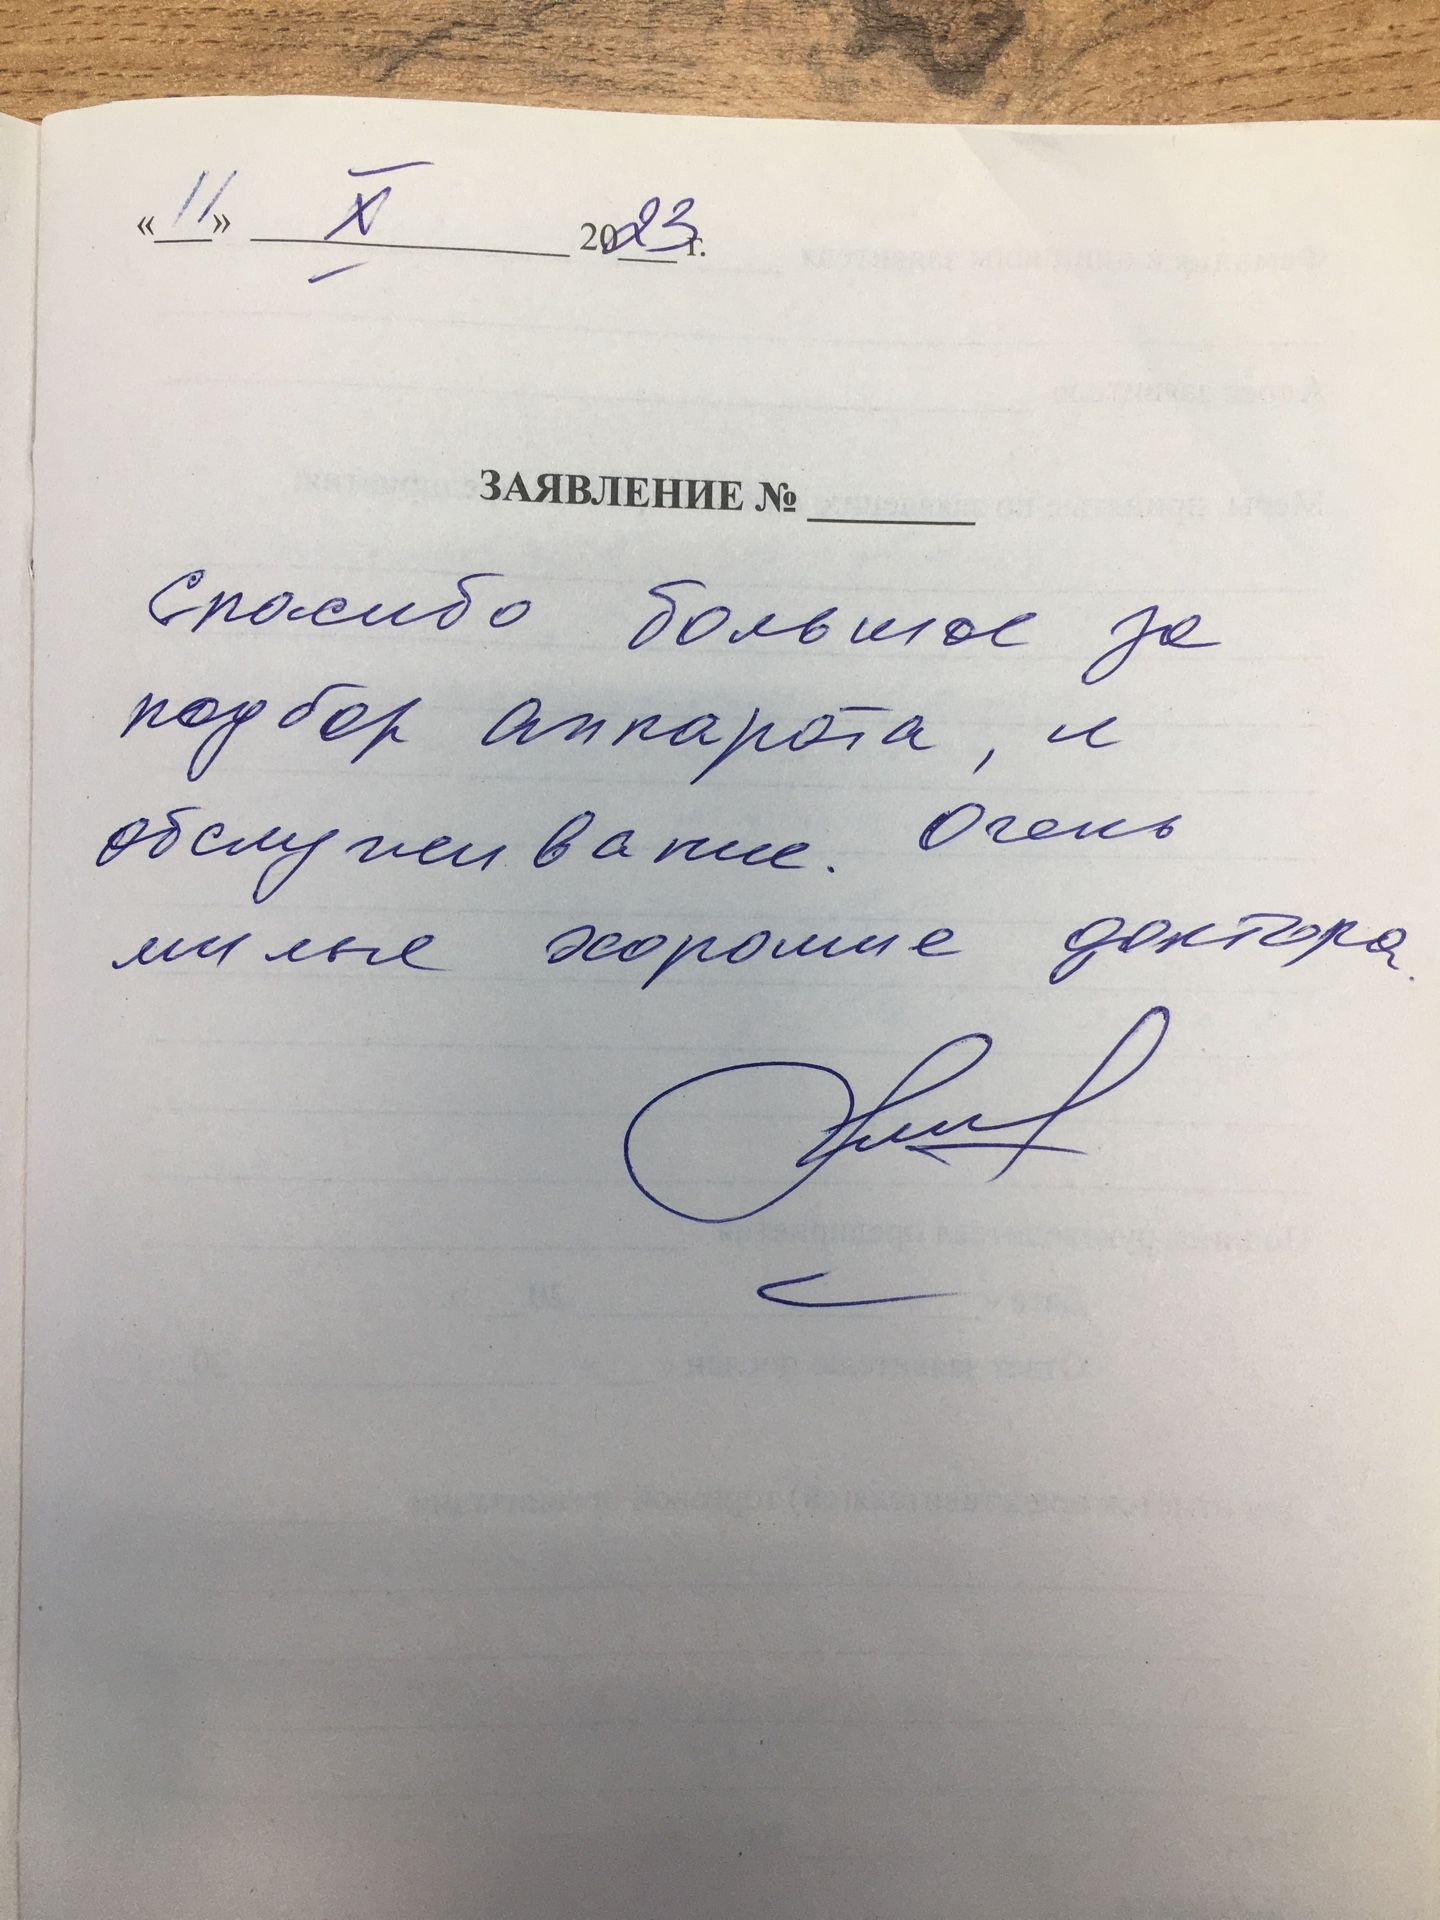 «11» X 2023 г.
ЗАЯВЛЕНИЕ № ______
Спасибо большое за
подбор аппарата, и
обслуживание. Очень
милые хорошие доктора.